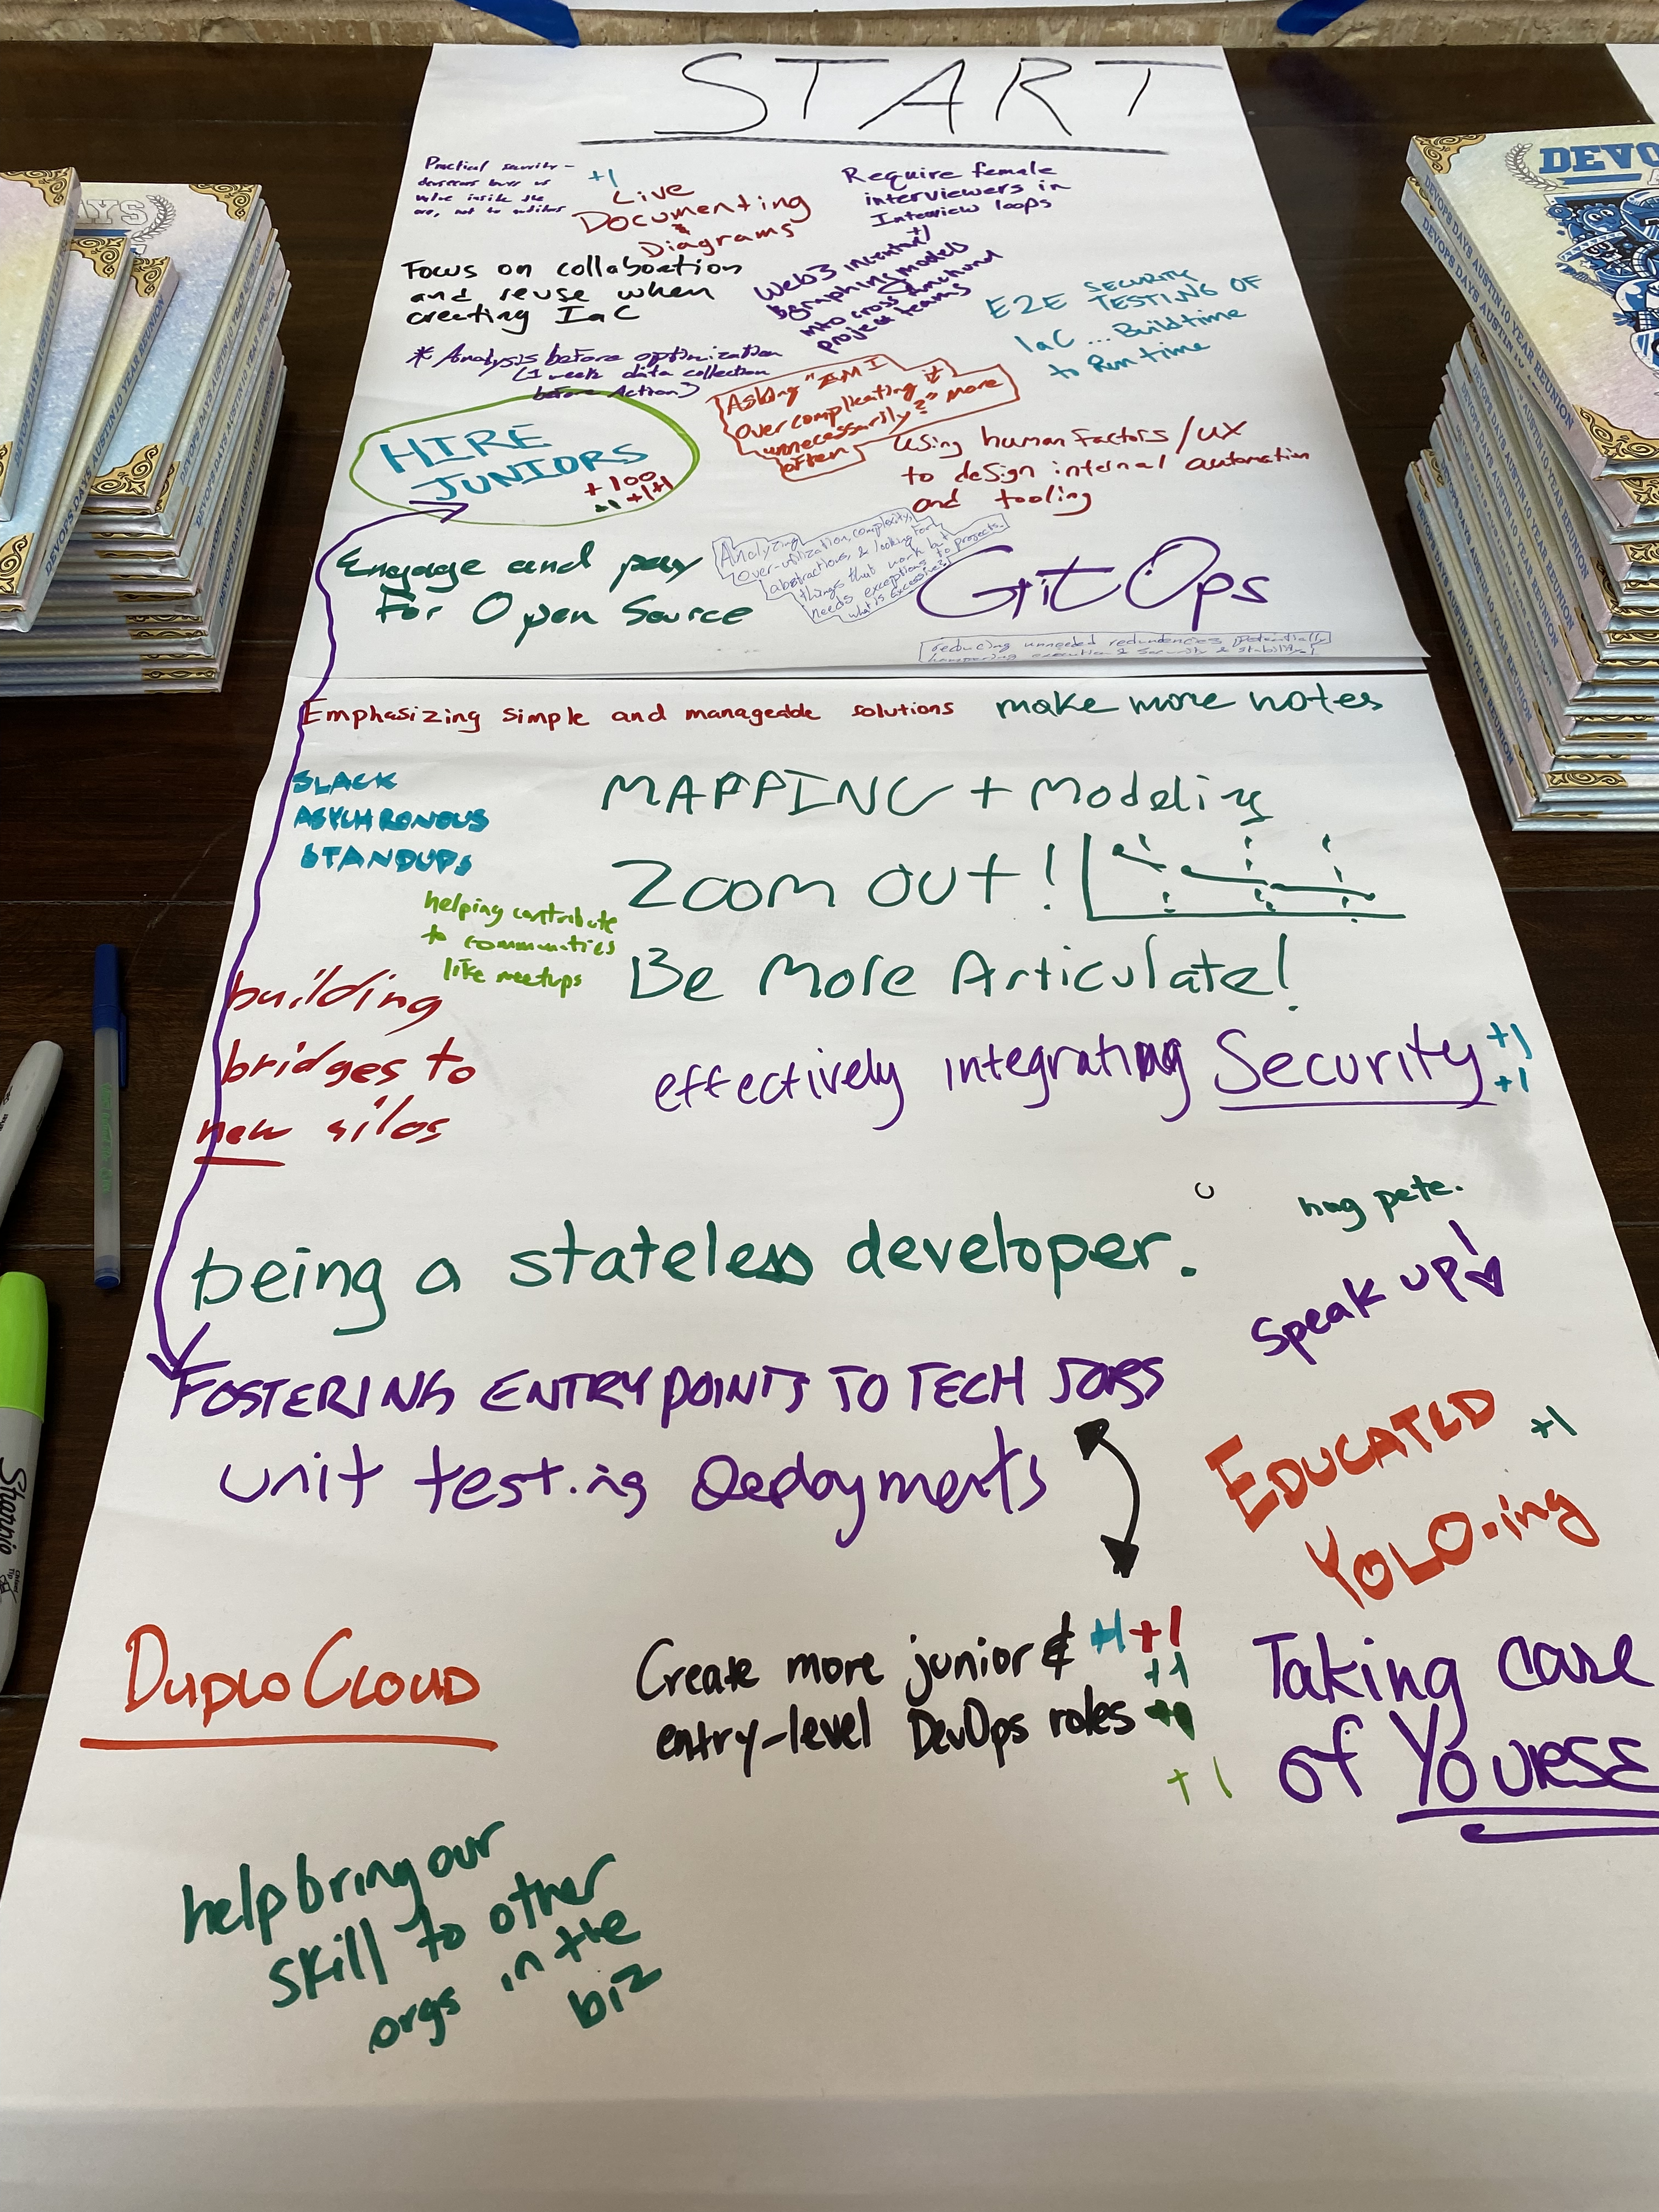 START
Practical security -
+1
Live
Documenting
&
Diagrams
Require female
interviewers in
Interview loops
+1
Focus on collaboction
and reuse when
creating IaC
Web3
models
into cross
project teams
E2E SECURITY
TESTING OF
IaC ... Buildtime
to Runtime
* Analysis before optimization
(1 week data collection
before Action)
Asking "AM I
overcomplicating it
unnecessarily?" more
often
HIRE
JUNIORS
+100
+1 +1+1
Using human factors/UX
to design internal automation
and tooling
Engage and pay
For Open Source
Analyzing
over-utilization, complexity,
abstractions, & looking for
things that work but
needs exceptions to projects.
what is excessive?
GitOps
reducing unneeded redundencies potentially
hampering execution & security & stability!
Emphasizing simple and manageable solutions
make more notes
SLACK
ASYCHRONOUS
STANDUPS
MAPPING + Modeling
Zoom out!
helping contribute
to communities
like meetups
Be More Articulate!
building
bridges to
new silos
effectively integrating Security
+1
+1
being a stateless developer.
hug pete.
Speak up!
FOSTERING ENTRY POINTS TO TECH JOBS
unit testing Deployments
EDUCATED
YOLO-ing
+1
DuploCloud
Create more junior &
entry-level DevOps roles
+1 +1
+1
+1
Taking care
of YOURSE
help bring our
skill to other
orgs in the
biz
DEVO
DEVOPS DAYS AUSTIN 10 YEAR REUNION
DEVOPS DAYS AUSTIN 10 YEAR REUNION
AYS
Sharpie